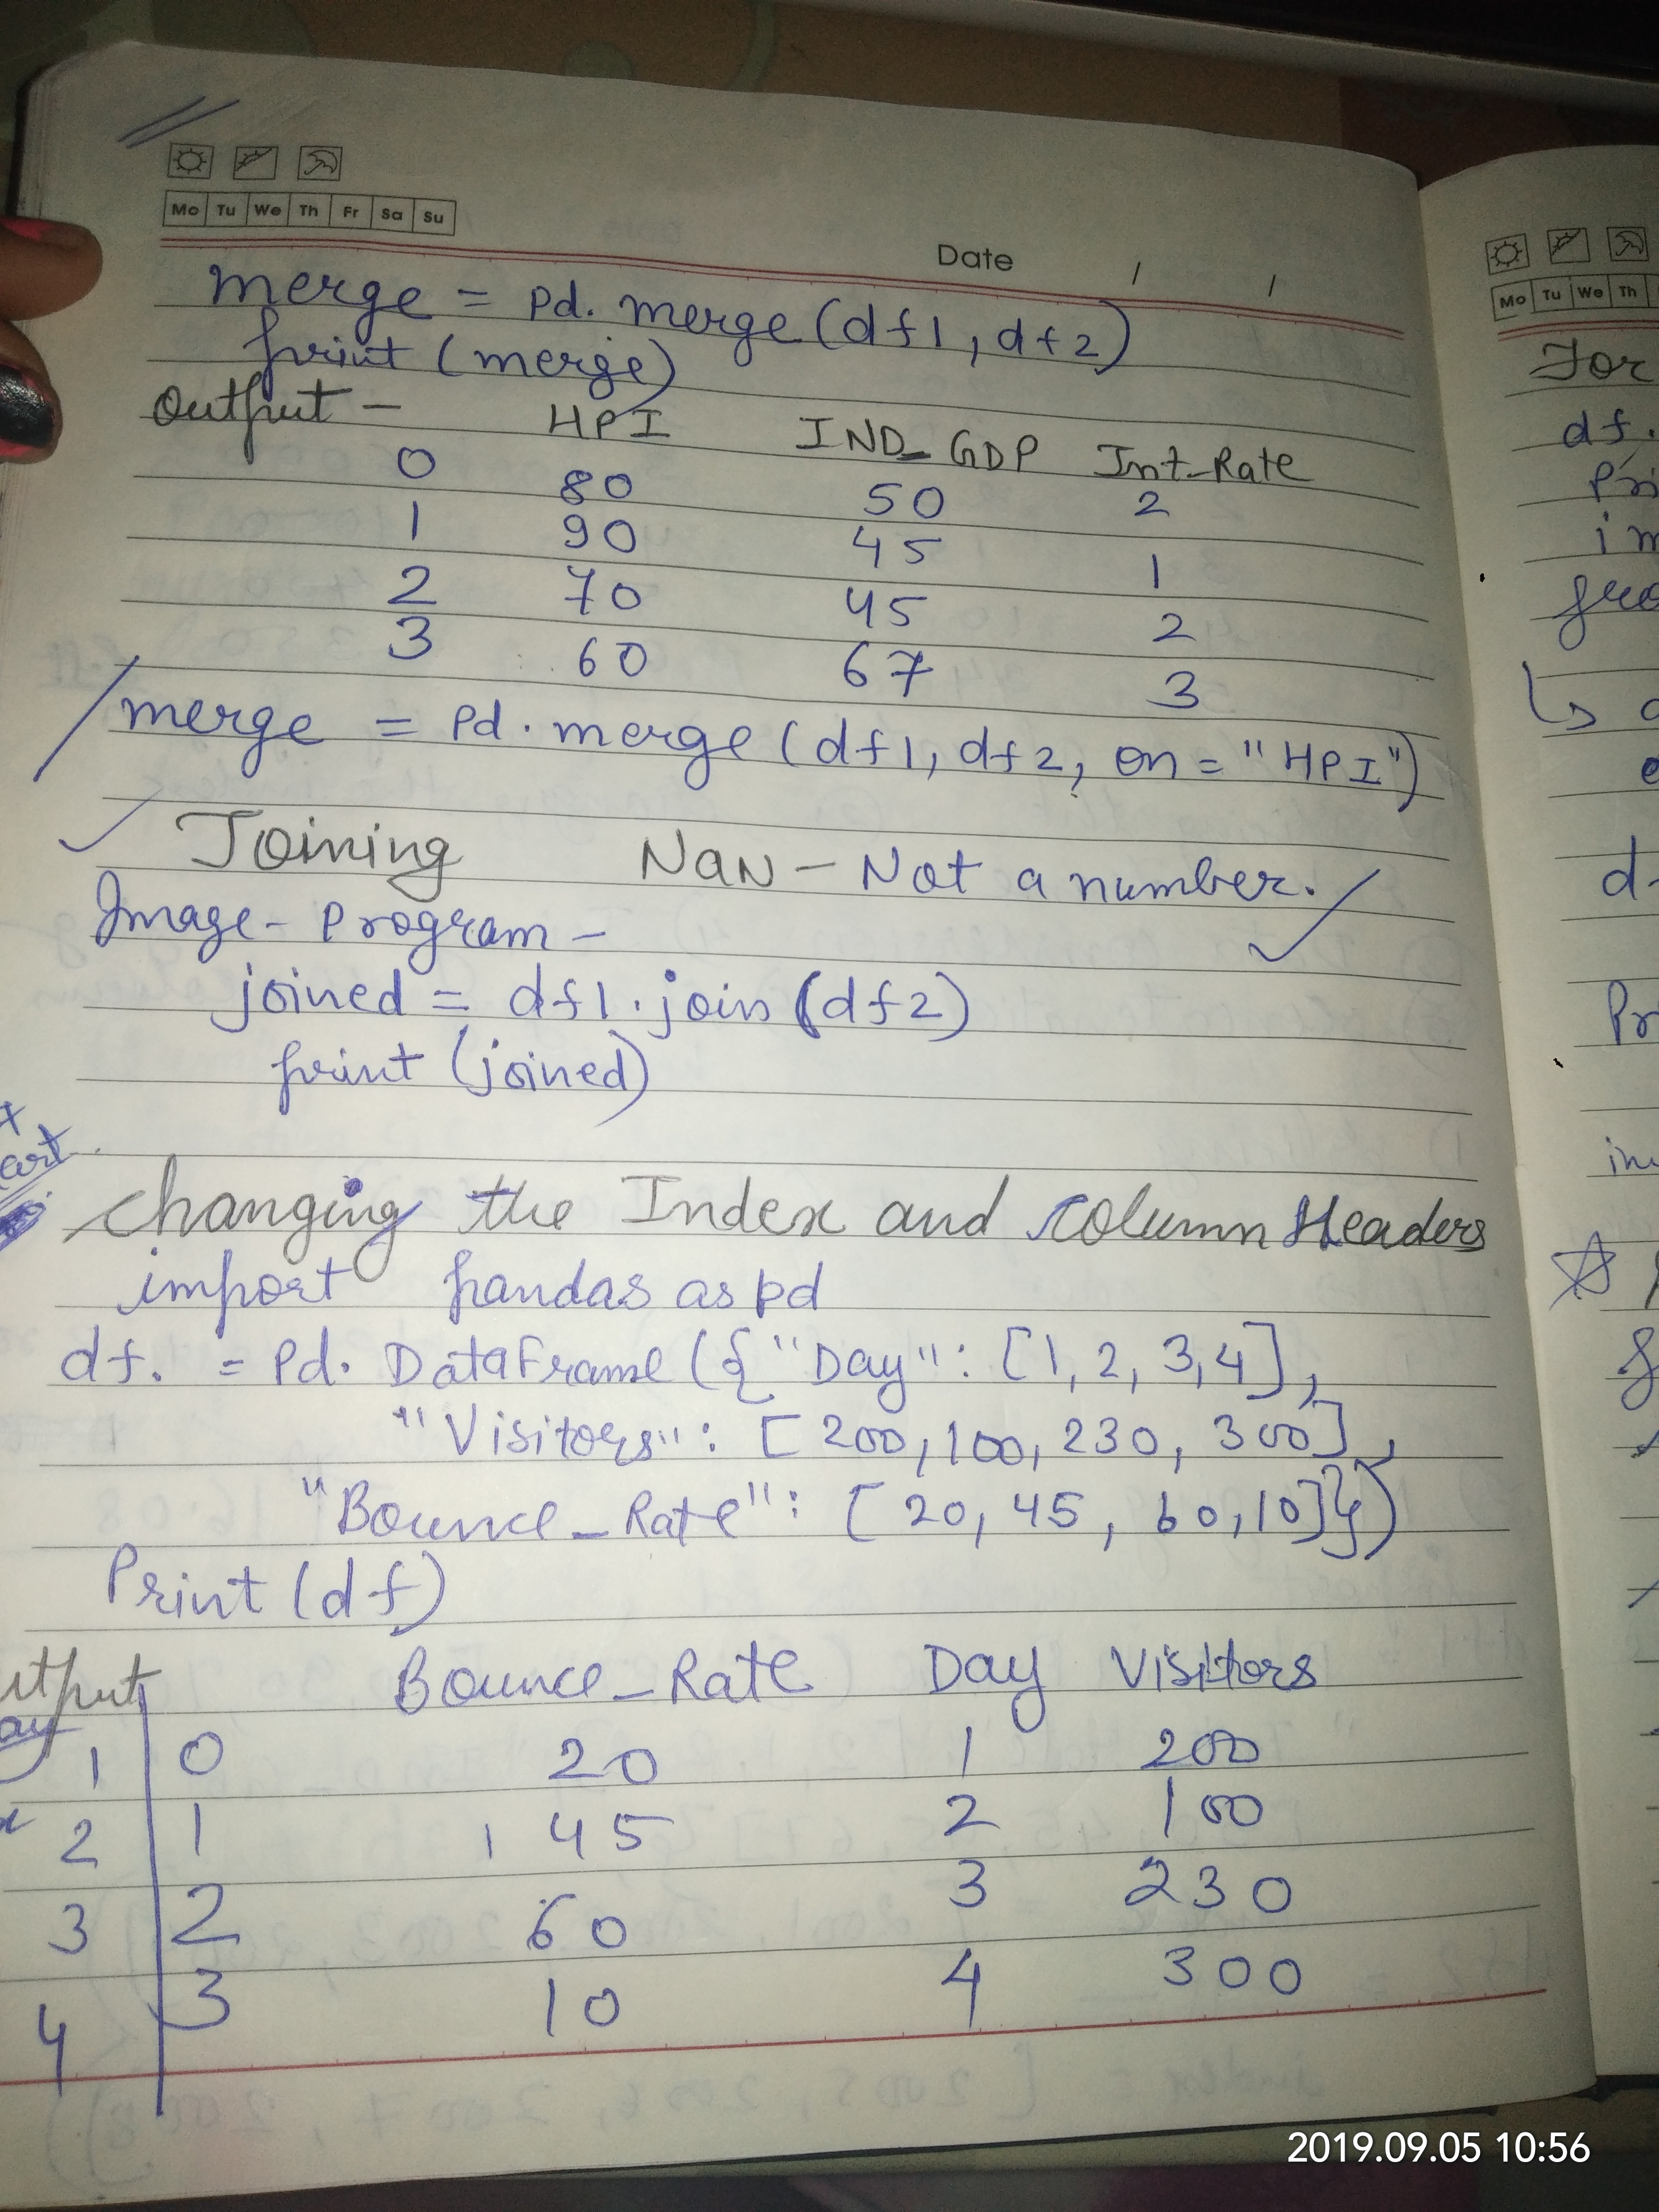 Mo Tu We Th Fr Sa Su
Date / /
merge = Pd. merge (df1, df2)
print (merge)
Output – HPI IND_GDP Int_Rate
0 80 50 2
1 90 45 1
2 70 45 2
3 60 67 3
merge = Pd. merge (df1, df2, on = "HPI")
Joining NaN – Not a number.
Image - Program –
joined = df1.join (df2)
print (joined)
changing the Index and Column Headers
import pandas as pd
df. = Pd. DataFrame ({ "Day" : [1, 2, 3, 4],
"Visitors" : [200, 100, 230, 300],
"Bounce_Rate" : [20, 45, 60, 10]})
Print (df)
utput Bounce_Rate Day Visitors
ay
1 0 20 1 200
2 1 45 2 100
3 2 60 3 230
4 3 10 4 300
Mo Tu We Th
For
df.
Pri
im
d
Pr
2019.09.05 10:56